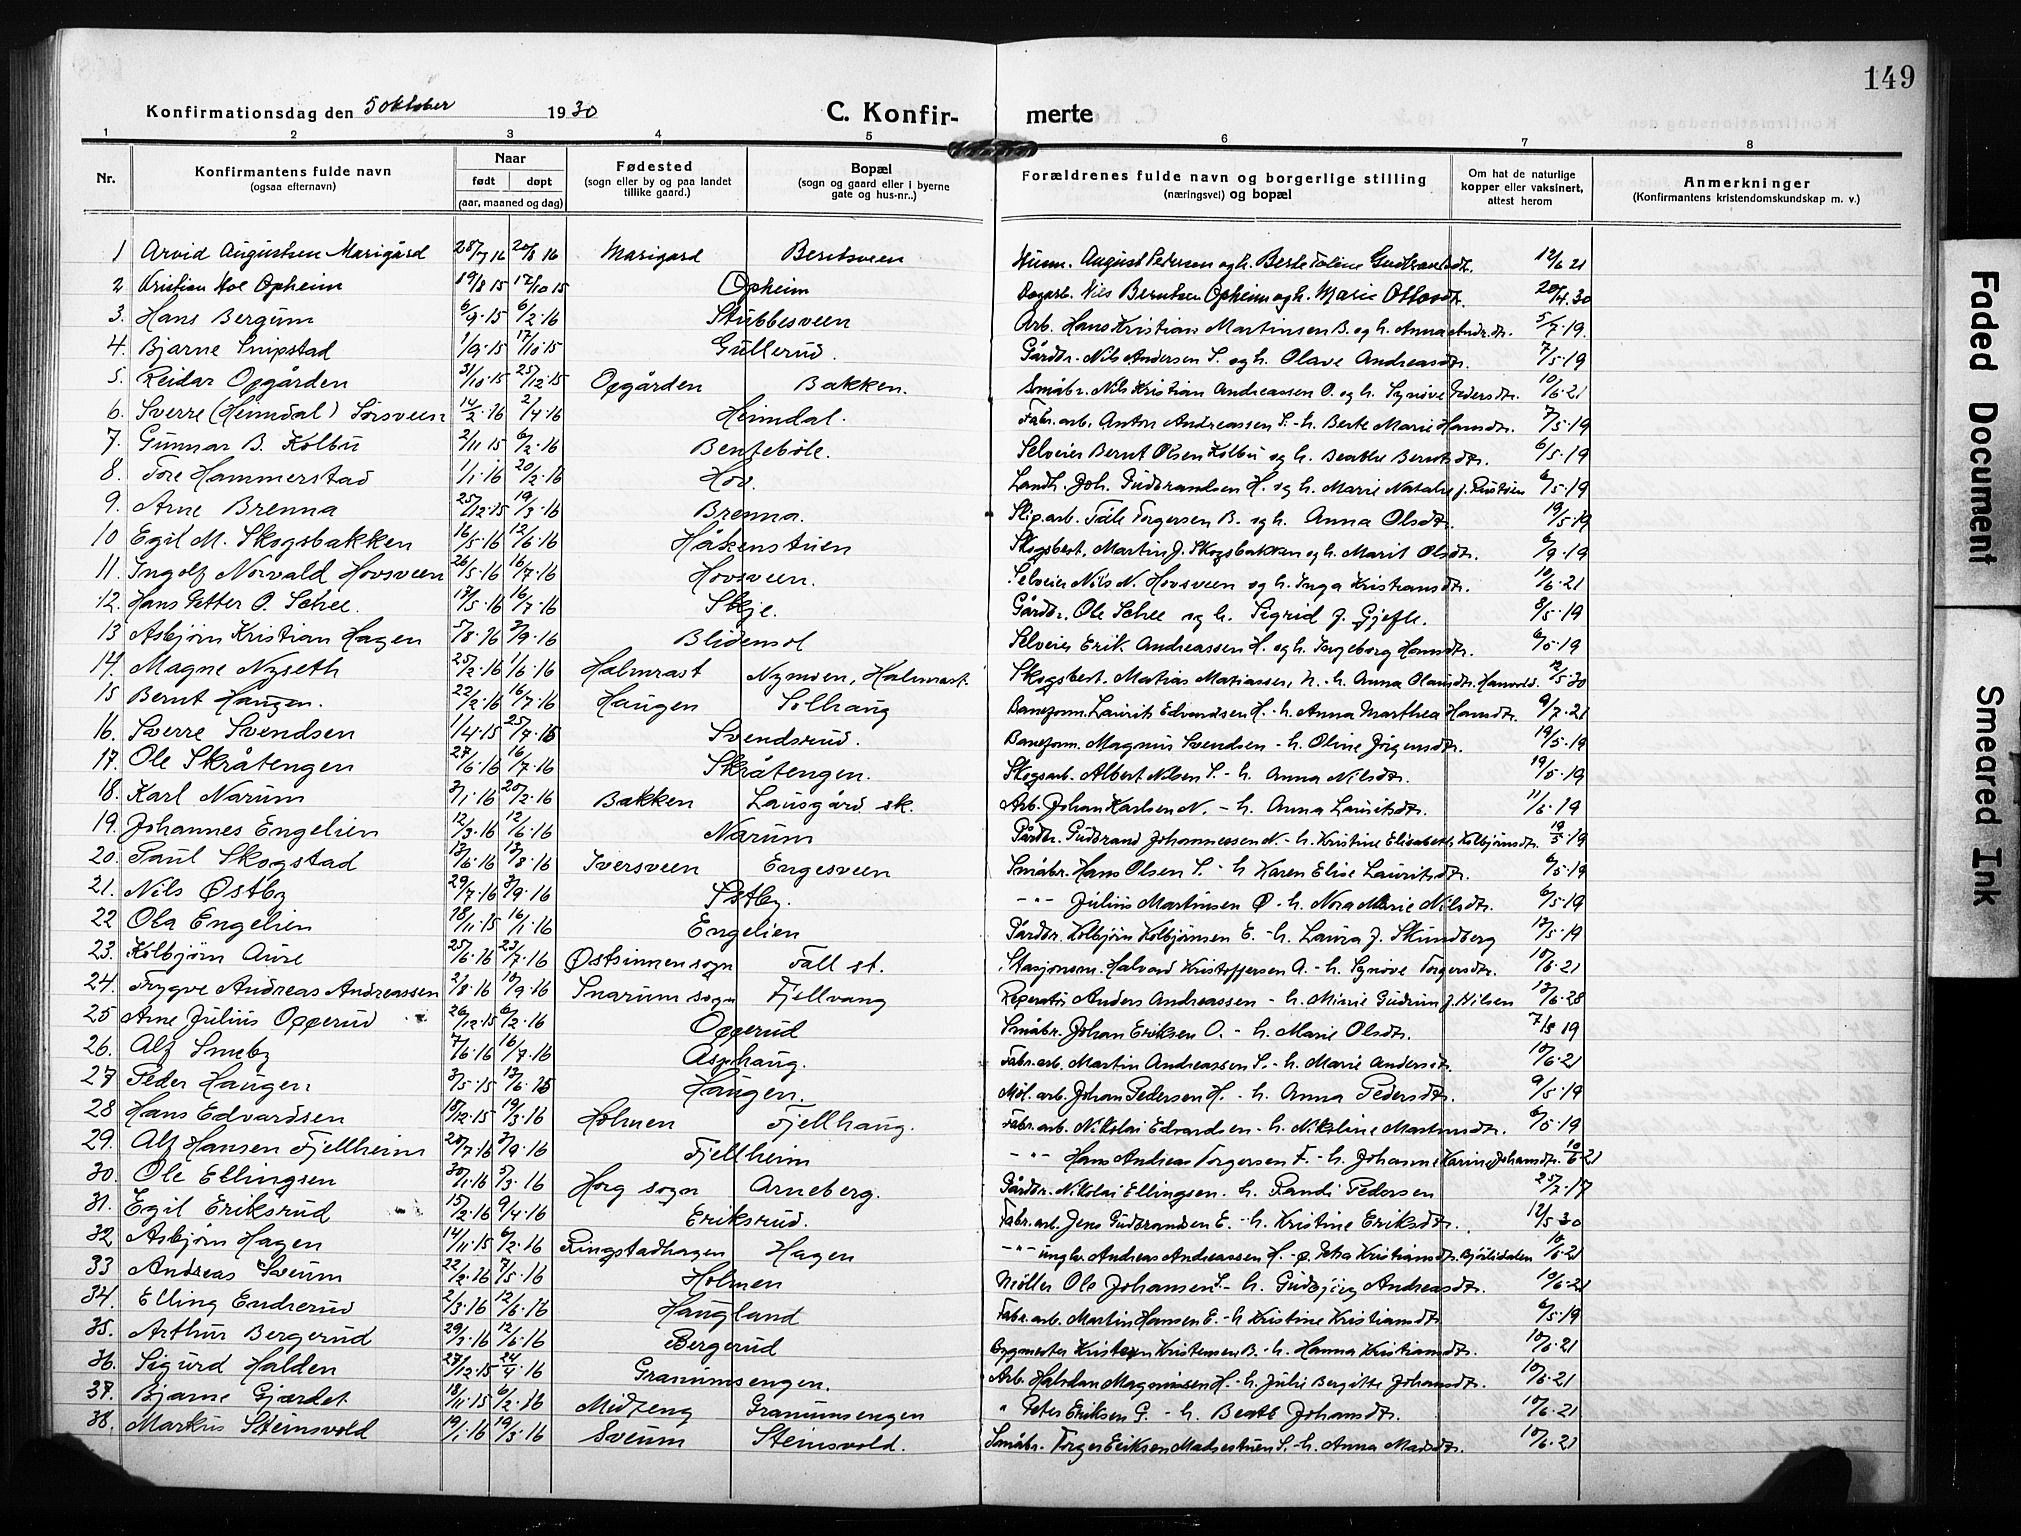 149
Konfirmationsdag den 5 oktober 1930 C. Konfir- merte
1 2 3 4 5 6 7 8
Nr. Konfirmantens fulde navn (ogsaa efternavn) Naar født døpt (aar, maaned og dag) Fødested (sogn eller by og paa landet tillike gaard.) Bopæl (sogn og gaard eller i byerne gate og hus-nr..) Forældrenes fulde navn og borgerlige stilling (næringsvei) og bopæl Om hat de naturlige kopper eller vaksinert, attest herom Anmerkninger (Konfirmantens kristendomskundskap m. v.)
1 Arvid Augustsen Marigård 28/7 16 20/8 16 Marigård Beritsveen Husm. August Pedersen og h. Berte Toline Gudbrandsdtr. 12/6 21
2 Kristian Moe Opheim 19/8 15 17/10 15 Opheim Dagarb. Nils Berntsen Opheim og h. Marie Ottosdtr. 20/4.30
3. Hans Bergum 6/9.15 6/2.16 Stubbesveen Arb. Hans Kristian Martinsen B. og h. Anna Andr.dtr. 5/7.19.
4. Bjarne Snipstad 1/9.15 17/10.15 Gullerud. Gårdbr. Nils Andersen S. og h. Olave Andreasdtr. 7/5.19
5. Reidar Opgården 31/10.15 25/12.15 Opgården Bakken. Småbr. Nils Kristian Andreassen O. og h. Synøve Pedersdtr. 10/6.21
6. Sverre (Heimdal) Sørsveen 14/2.16 2/4.16 Heimdal. Fabr.arb. Anton Andreassen S. - h. Berte Marie Hansdtr. 7/5.19
7. Gunnar B. Kolbu 2/11 15 6/2.16 Bentebøle. Selveier Bernt Olsen Kolbu og h. Beathe Berntsdtr. 6/5.19
8. Tore Hammerstad 1/1.16 20/2.16 Hov. Landh. Joh. Gudbrandsen H. og h. Marie Natalie f. 6/5.19
9. Arne Brenna 25/12.15 19/3.16 Brenna. Slip.arb. Torgersen B. og h. Anna Olsdtr. 19/5.19
10 Egil M. Skogsbakken 16/5.16 12/6.16 Håkenstuen Skogsbest. Martin J. Skogsbakken og h. Marit Olsdtr. 6/9.19
11. Ingolf Norvald Hovsveen 26/5.16 16/7.16 Hovsveen. Selveier Nils N. Hovsveen og h. Inga Kristiansdtr. 10/6.21
12. Hans Petter O. Schee. 17/5.16 16/7.16 Skje. Gårdbr. Ole Schee og h. Sigrid f. Gjefle. 8/5.19
13 Asbjørn Kristian Hagen 5/8.16 3/9.16 Blidensol Selveier Erik Andreassen H. og h. Ingeborg Hansdtr. 6/5.19
14. Magne Nyseth 25/2.16 1/6.16 Halmrast Nymoen, Halmrast. Skogsbest. Matias Matiassen, N. - h. Anna Olausdtr. Hanvold. 12/5.30
15 Bernt Haugen. 22/2.16 16/7.16 Haugen Solhaug Baneform. Laurits Edvardsen H. - h. Anna Marthea Hansdtr. 9/7.21
16. Sverre Svendsen 1/4.15 25/7.15 Svendsrud. Baneform. Magnus Svendsen - h. Oline Jørgensdtr. 19/5.19
17. Ole Skråtengen 27/6.16 16/7.16 Skråtengen. Skogsarb. Albert Nilsen S. - h. Anna Nilsdtr. 19/5.19
18. Karl Narum 3/1.16 20/2.16 Bakken Lausgård sk. Arb. Johan Karlsen N. - h. Anna Lauritsdtr. 11/6.19
19. Johannes Engelien 12/3.16 12/6.16 Narum Gårdbr. Gudbrand Johannessen N. - h. Kristine Elisabeth Kolbjørnsdtr. 19/5.19
20. Paul Skogstad 13/6.16 13/8.16 Iversveen Engesveen Småbr. Hans Olsen S. - h Karen Elise Lauritsdtr. 6/5.19
21. Nils Østby 29/7.16 3/9.16 Østby. - " - Julius Martinsen Ø - h. Nora Marie Nilsdtr. 6/5.19
22 Ola Engelien 18/11.15 16/1.16 Engelien Gårdbr. Kolbjørn Kolbjørnsen E. - h. Laura f. Skundberg 13/5.19
23. Kolbjørn Aure 25/6.16 23/7.16 Østsinnen sogn Fall st. Stasjonsm. Halvard Kristoffersen A. - h. Synøve Torgersdtr. 10/6.21
24. Trygve Andreas Andreassen 2/8.16 10/9.16 Snarum sogn Fjellvang Reperatør Anders Andreassen - h. Marie Gudrun f. Nilsen 13/6.28
25 Arne Julius Oppegrud 26/12.15 6/2.16 Oppegrud Småbr. Johan Eriksen O. - h. Marie Olsdtr. 7/8 19
26. Alf Smeby 7/6.16 16/7.16 Asphaug. Fabr.arb. Martin Andreassen S. - h. Marie Andersdtr. 10/6.21
27 Peder Haugen 3/5.15 13/6.15 Haugen. Møl.arb. Johan Pedersen H. - h. Anna Pedersdtr. 9/5.19
28 Hans Edvardsen 18/12.15 19/3.16 Holmen Fjellhaug. Fabr.arb. Nikolai Edvardsen - h. Nikoline Martinsdtr. 6/5.19
29. Alf Hansen Fjellheim 20/7.16 3/9.16 Fjellheim - " - Hans Andreas Torgersen F. - h. Johanne Karine Johansdtr. 10/6.21
30. Ole Ellingsen 30/1.16 5/3.16 Horg sogn Arneberg. Gårdbr. Nikolai Ellingsen. h. Randi Pedersen 25/7.17
31. Egil Eriksrud 15/2.16 9/4.16 Eriksrud. Fabr.arb. Jens Gudbrandsen E. - h. Kristine Eriksdtr. 12/5 30
32 Asbjørn Hagen 14/11.15 6/2.16 Ringstadhagen Hagen - " - ungkr. Andreas Andreassen H. - p. Petra Kristiansdtr. Bjørlidalen 10/6.21
33 Andreas Sveum 22/2.16 7/5.16 Holmen Møller Ole Johansen S. - h. Gudbjørg Andreasdtr. 10/6.21
34. Elling Endrerud 2/3.16 12/6.16 Haugland Fabr.arb. Martin Hansen E. - h Kristine Kristiansdtr 6/5.19
35. Arthur Bergerud 29/3.16 12/6.16 Bergerud Bygmester Kristen Kristensen B. - h. Hanna Kristiansdtr. 10/6.21
36. Sigurd Halden 27/12.15 24/4.16 Granumsengen. Arb. Halvdan Magnussen H. - h. Julie Bergitte Johansdtr. 10/6.21
37. Bjarne Gjærdet 18/11.15 6/2.16 Midteng Granumsengen " Peter Eriksen G. - h. Beate Johansdtr. 10/6.21
38. Markus Steinsvold 19/1.16 19/3.16 Sveum Steinsvold. Småbr. Torger Eriksen Madsestuen S. - h. Anna Madsdtr. 10/6.21
Faded Document
Smeared Ink